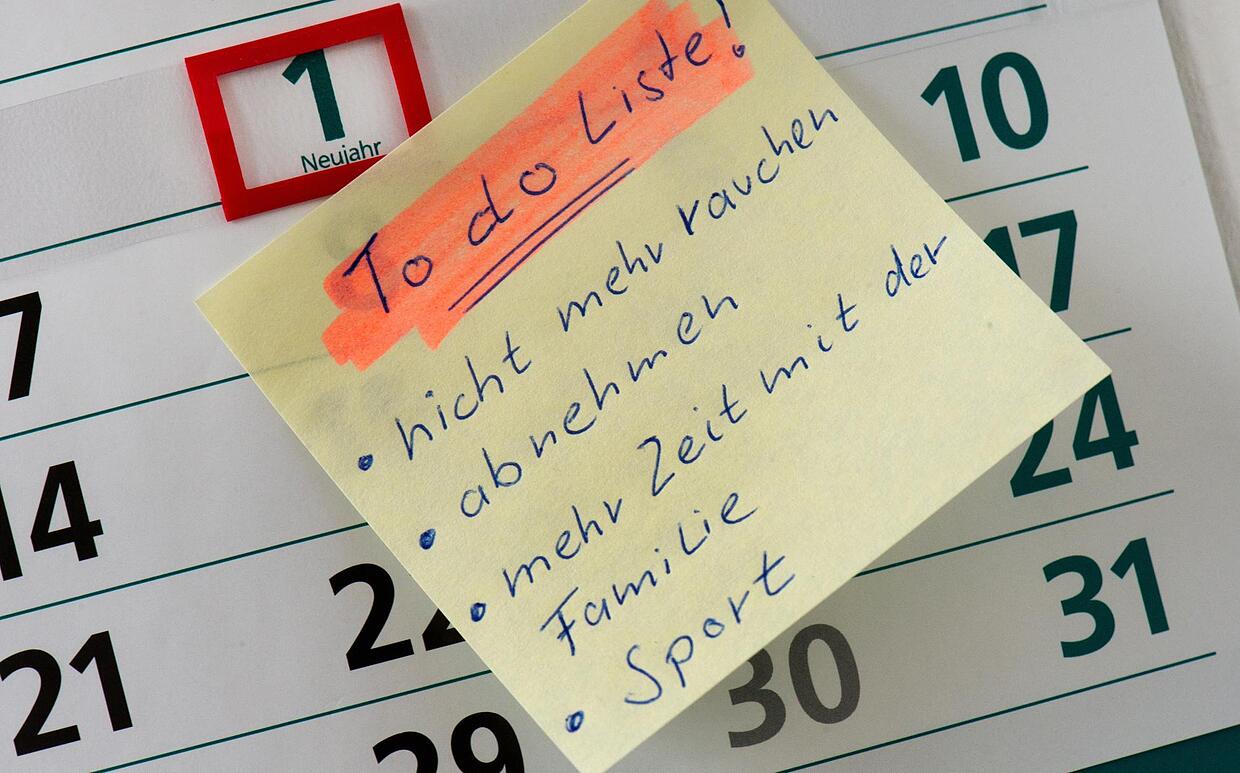 1
Neujahr
To do Liste!
• nicht mehr rauchen
• abnehmen
• mehr Zeit mit der
Familie
• Sport
10
7
17
14
24
21
22
31
29
30